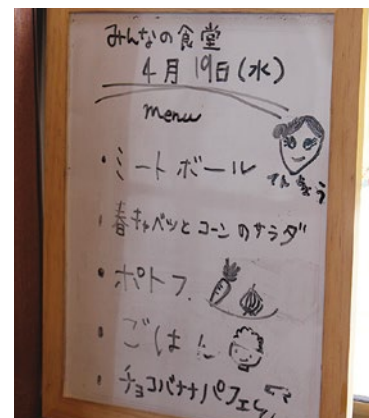 みんなの食堂
4月19日(水)
menu
・ミートボール
・春キャベツとコーンのサラダ
・ポトフ
・ごはん
・チョコバナナパフェ